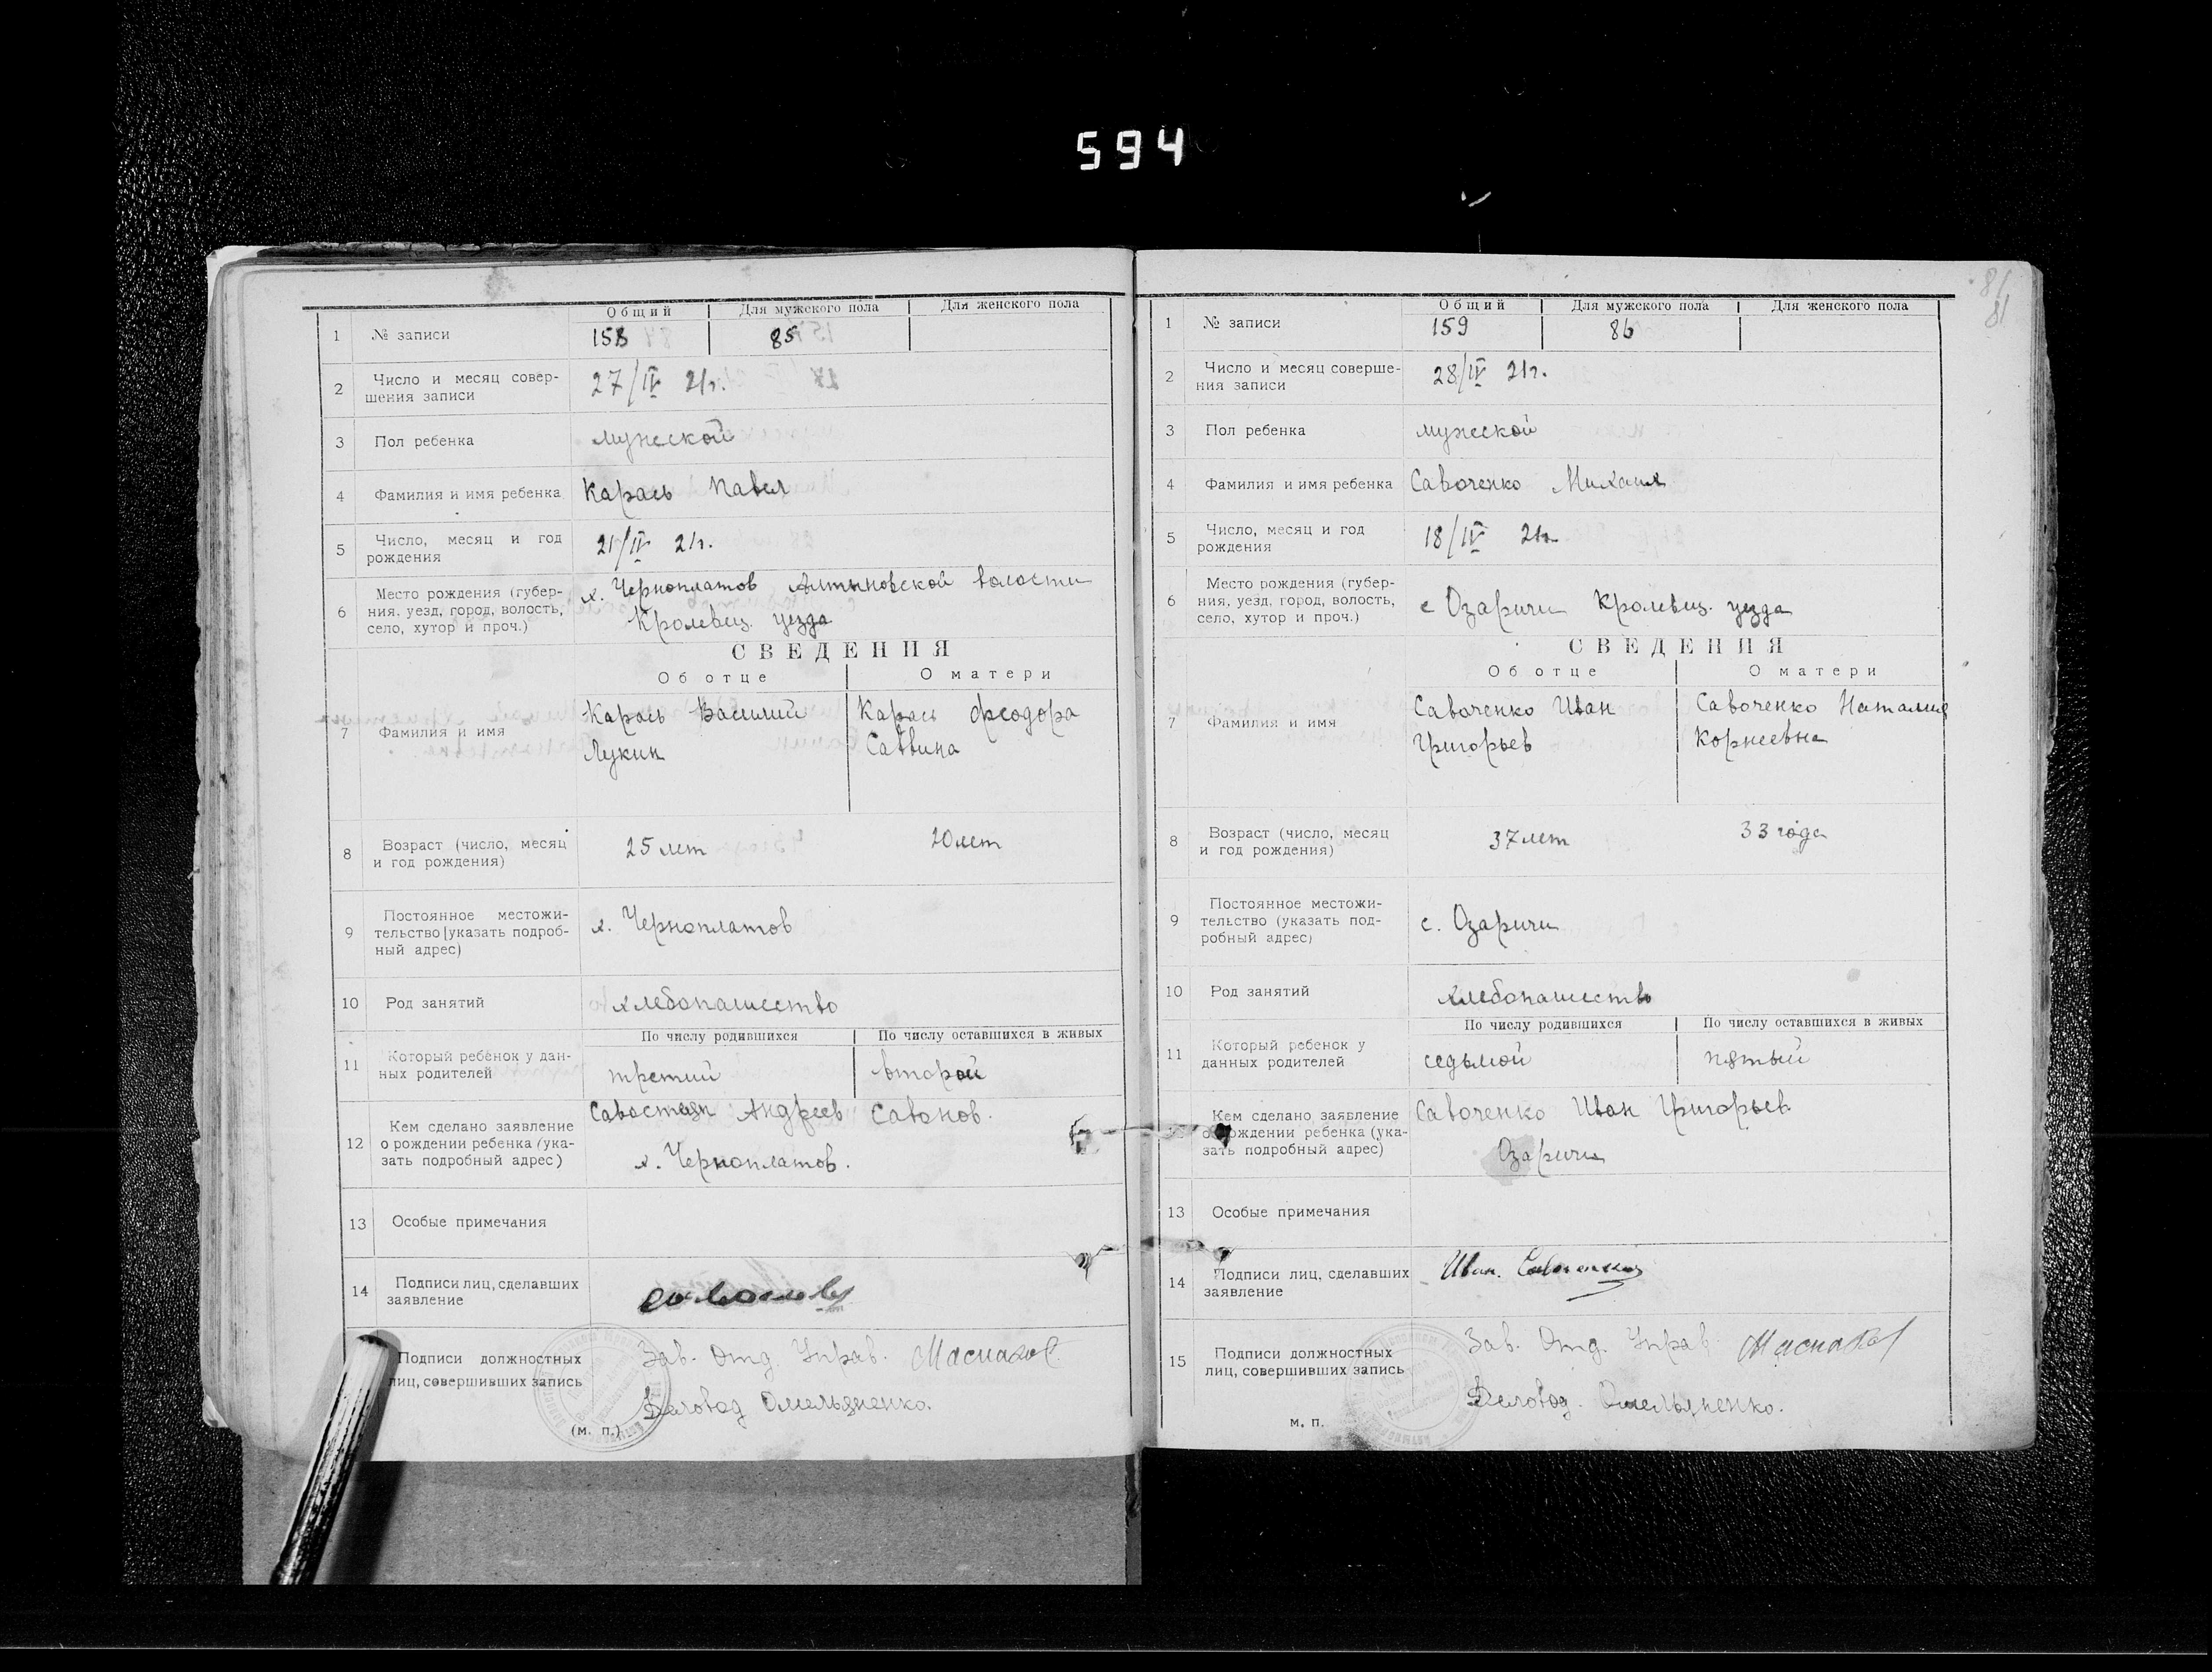 594
81
81
Общий Для мужского пола Для женского пола
1 № записи 158 85
2 Число и месяц совер-
шения записи 27/IV 21г.
3 Пол ребенка мужеской
4 Фамилия и имя ребенка Карась Павел
5 Число, месяц и год
рождения 21/IV 21г.
6 Место рождения (губер-
ния, уезд, город, волость,
село, хутор и проч.) х. Черноплатов Алтыновской волости
Кролевец. уезда
СВЕДЕНИЯ
Об отце О матери
7 Фамилия и имя Карась Василий Карась Феодора
Лукин Саввина
8 Возраст (число, месяц
и год рождения) 25 лет 20 лет
9 Постоянное местожи-
тельство (указать подроб-
ный адрес) х. Черноплатов
10 Род занятий хлебопашество
По числу родившихся По числу оставшихся в живых
11 Который ребенок у дан-
ных родителей третий второй
12 Кем сделано заявление
о рождении ребенка (ука-
зать подробный адрес) Савостьян Андреев Савонов.
х. Черноплатов.
13 Особые примечания
14 Подписи лиц, сделавших
заявление
Подписи должностных
лиц, совершивших запись Зав. Отд. Управ.
Деловод Омельяненко.
(м. п.)
Общий Для мужского пола Для женского пола
1 № записи 159 86
2 Число и месяц соверше-
ния записи 28/IV 21г.
3 Пол ребенка мужеской
4 Фамилия и имя ребенка Савоченко Михаил
5 Число, месяц и год
рождения 18/IV 21г.
6 Место рождения (губер-
ния, уезд, город, волость,
село, хутор и проч.) с Озаричи Кролевец. уезда
СВЕДЕНИЯ
Об отце О матери
7 Фамилия и имя Савоченко Иван Савоченко Наталия
Григорьев Корнеевна
8 Возраст (число, месяц
и год рождения) 37 лет 33 года
9 Постоянное местожи-
тельство (указать под-
робный адрес) с. Озаричи
10 Род занятий хлебопашество
По числу родившихся По числу оставшихся в живых
11 Который ребенок у
данных родителей седьмой пятый
Кем сделано заявление
о рождении ребенка (ука-
зать подробный адрес) Савоченко Иван Григорьев
Озаричи
13 Особые примечания
14 Подписи лиц, сделавших
заявление Иван. Савоченко
15 Подписи должностных
лиц, совершивших запись Зав. Отд. Управ
Деловод. Омельяненко.
м. п.